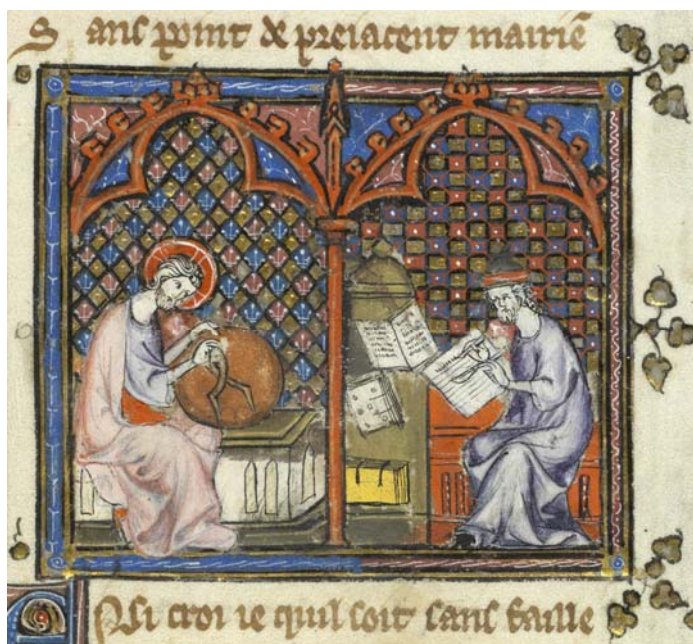 S ans point de preiacent mairie͂
Si croi ie quil soit sanz faille